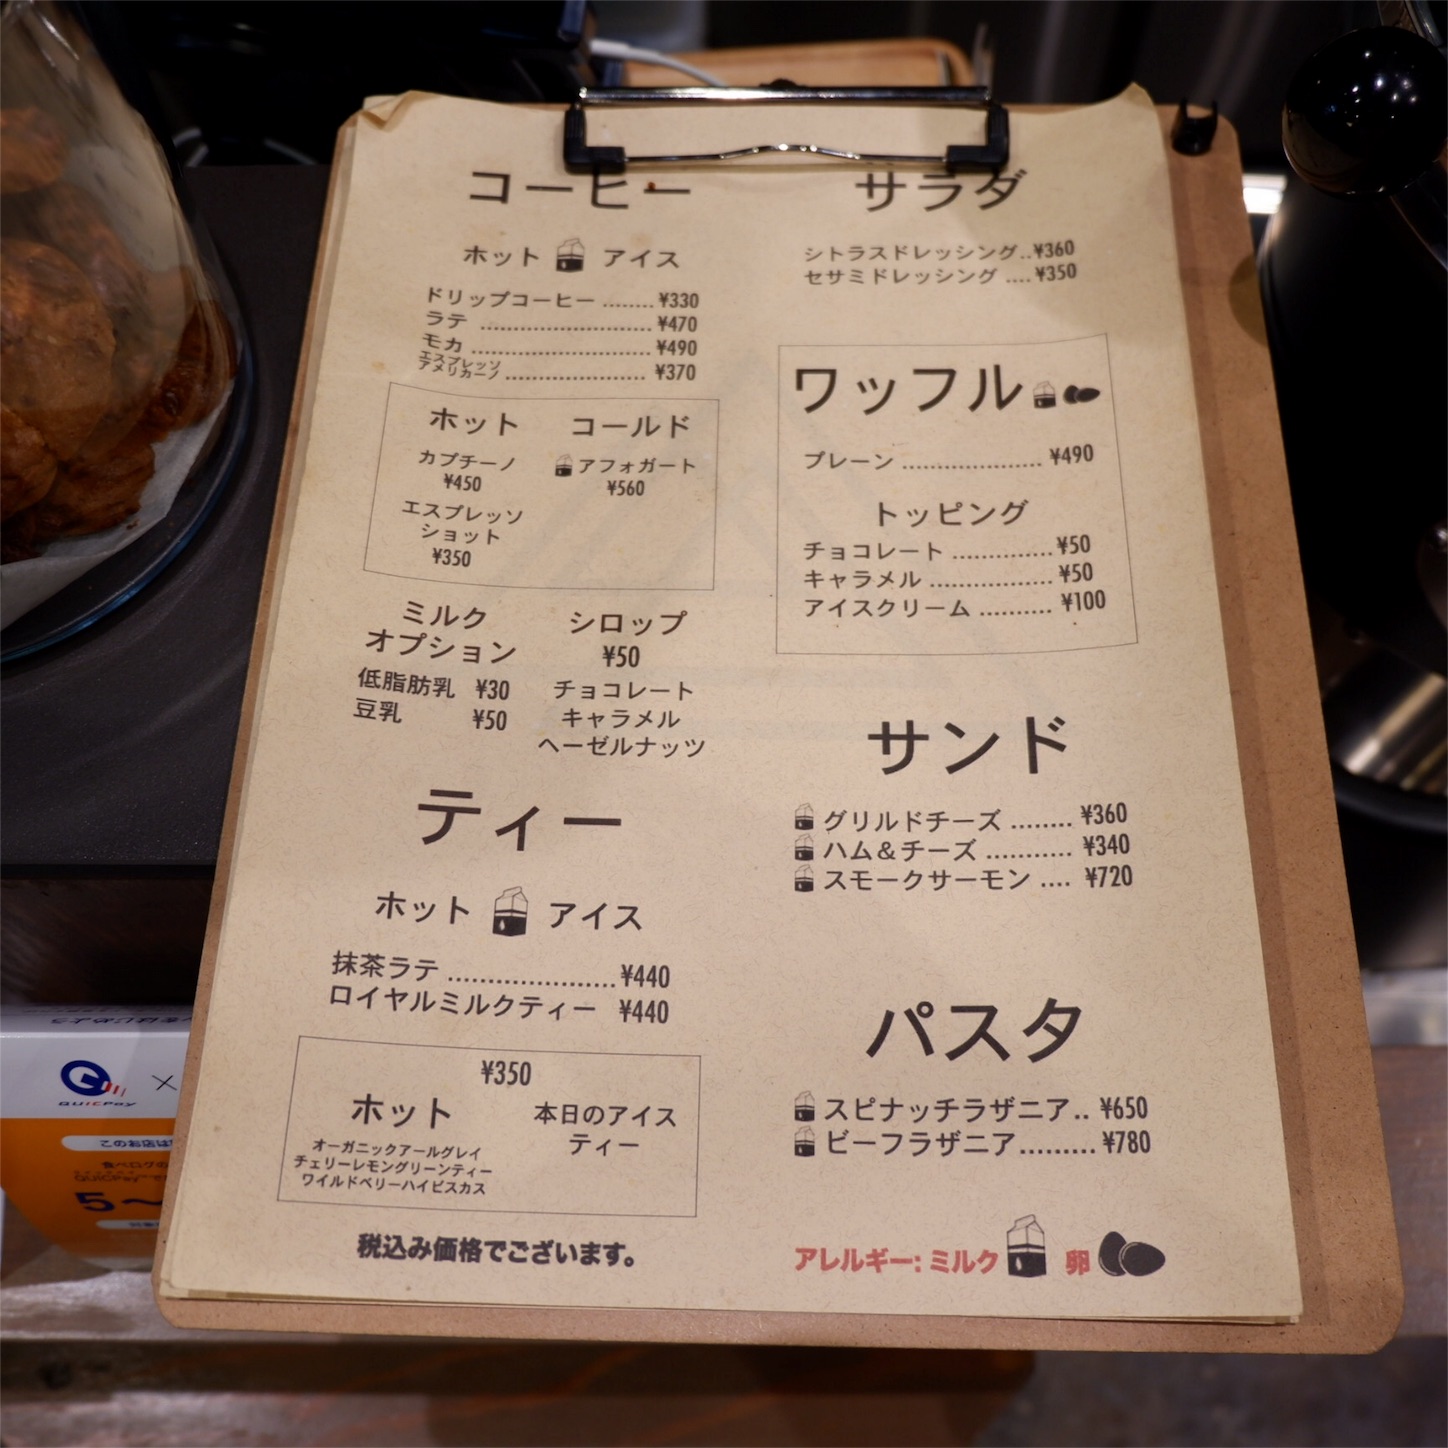 コーヒー
ホット アイス
ドリップコーヒー ........ ¥330
ラテ ............................ ¥470
モカ .............................. ¥490
エスプレッソ
アメリカーノ ........................ ¥370
ホット
カプチーノ
¥450
エスプレッソ
ショット
¥350
コールド
アフォガート
¥560
ミルク
オプション
低脂肪乳 ¥30
豆乳 ¥50
シロップ
¥50
チョコレート
キャラメル
ヘーゼルナッツ
ティー
ホット アイス
抹茶ラテ ...................... ¥440
ロイヤルミルクティー ¥440
¥350
ホット
オーガニックアールグレイ
チェリーレモングリーンティー
ワイルドベリーハイビスカス
本日のアイス
ティー
税込み価格でございます。
サラダ
シトラスドレッシング..¥360
セサミドレッシング ....¥350
ワッフル
プレーン ..................... ¥490
トッピング
チョコレート ...............¥50
キャラメル ................... ¥50
アイスクリーム ........... ¥100
サンド
グリルドチーズ ........ ¥360
ハム&チーズ ........... ¥340
スモークサーモン .... ¥720
パスタ
スピナッチラザニア.. ¥650
ビーフラザニア.........¥780
アレルギー: ミルク 卵
QUICPay
×
このお店は
食べログの
QUICPay
5～